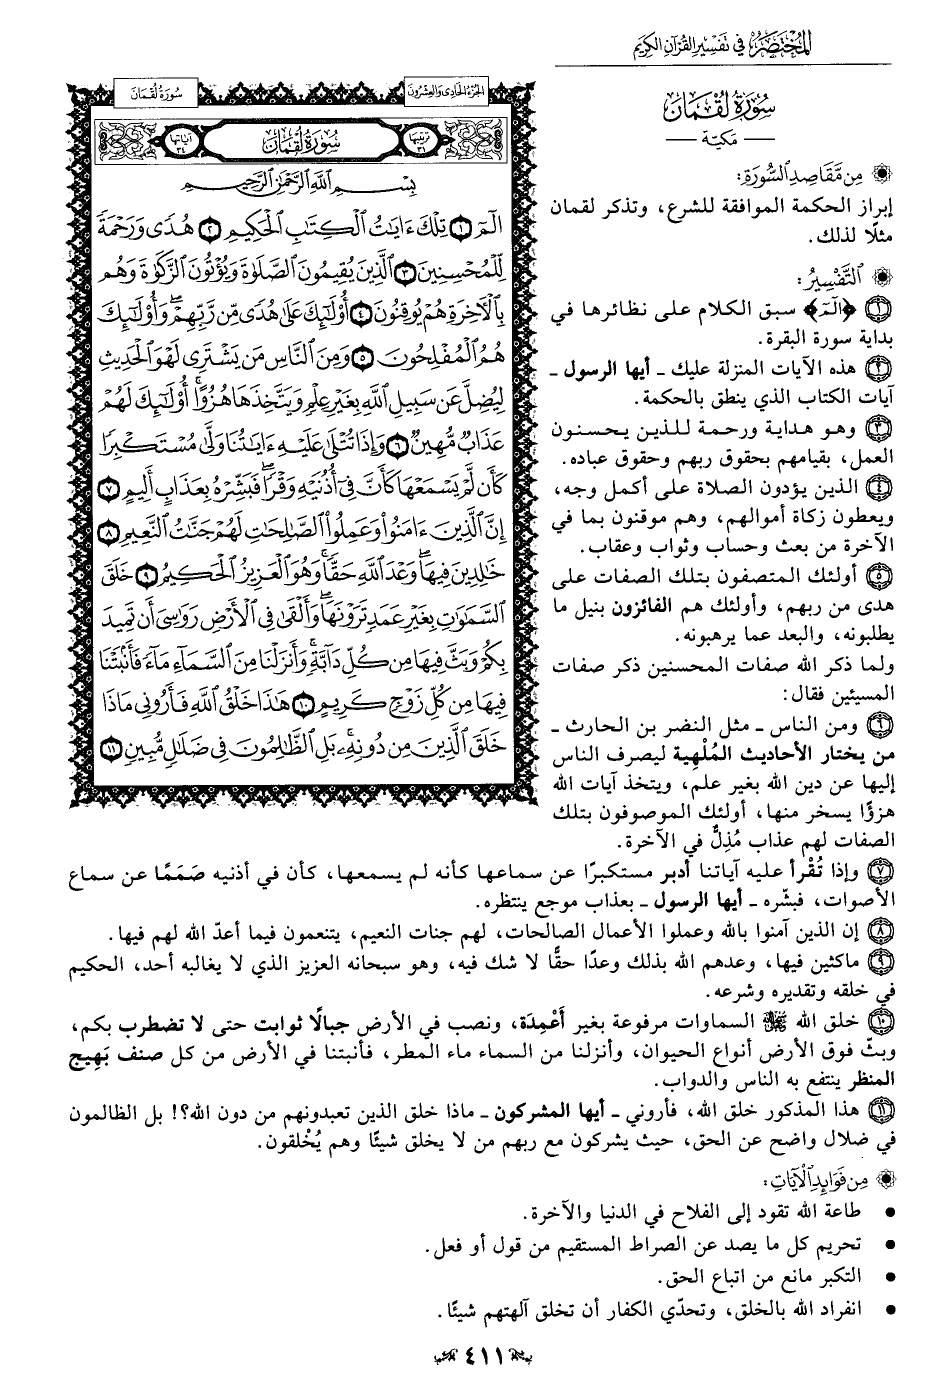 المختصر في تفسير القرآن الكريم
سُورَةُ لُقْمَانَ
— مكيّة —
مِن مَّقَاصِدِ السُّورَةِ:
إبراز الحكمة الموافقة للشرع، وتذكر لقمان
مثلًا لذلك.
التَّفْسِيرُ:
١ ﴿الٓمٓ﴾ سبق الكلام على نظائرها في
بداية سورة البقرة.
٢ هذه الآيات المنزلة عليك ـ أيها الرسول ـ
آيات الكتاب الذي ينطق بالحكمة.
٣ وهو هداية ورحمة للذين يحسنون
العمل، بقيامهم بحقوق ربهم وحقوق عباده.
٤ الذين يؤدون الصلاة على أكمل وجه،
ويعطون زكاة أموالهم، وهم موقنون بما في
الآخرة من بعث وحساب وثواب وعقاب.
٥ أولئك المتصفون بتلك الصفات على
هدى من ربهم، وأولئك هم الفائزون بنيل ما
يطلبونه، والبعد عما يرهبونه.
ولما ذكر الله صفات المحسنين ذكر صفات
المسيئين فقال:
٦ ومن الناس ـ مثل النضر بن الحارث ـ
من يختار الأحاديث المُلْهِية ليصرف الناس
إليها عن دين الله بغير علم، ويتخذ آيات الله
هزؤًا يسخر منها، أولئك الموصوفون بتلك
الصفات لهم عذاب مُذِلٌّ في الآخرة.
الجزء الحادي والعشرون
سورة لقمان
ترتيبها ٣١
سُورَةُ لُقْمَانَ
آياتها ٣٤
بِسْمِ اللَّهِ الرَّحْمَٰنِ الرَّحِيمِ
الٓمٓ ١ تِلْكَ ءَايَٰتُ ٱلْكِتَٰبِ ٱلْحَكِيمِ ٢ هُدًى وَرَحْمَةً
لِّلْمُحْسِنِينَ ٣ ٱلَّذِينَ يُقِيمُونَ ٱلصَّلَوٰةَ وَيُؤْتُونَ ٱلزَّكَوٰةَ وَهُم
بِٱلْأَخِرَةِ هُمْ يُوقِنُونَ ٤ أُو۟لَٰٓئِكَ عَلَىٰ هُدًى مِّن رَّبِّهِمْ ۖ وَأُو۟لَٰٓئِكَ
هُمُ ٱلْمُفْلِحُونَ ٥ وَمِنَ ٱلنَّاسِ مَن يَشْتَرِى لَهْوَ ٱلْحَدِيثِ
لِيُضِلَّ عَن سَبِيلِ ٱللَّهِ بِغَيْرِ عِلْمٍ وَيَتَّخِذَهَا هُزُوًا ۚ أُو۟لَٰٓئِكَ لَهُمْ
عَذَابٌ مُّهِينٌ ٦ وَإِذَا تُتْلَىٰ عَلَيْهِ ءَايَٰتُنَا وَلَّىٰ مُسْتَكْبِرًا
كَأَن لَّمْ يَسْمَعْهَا كَأَنَّ فِىٓ أُذُنَيْهِ وَقْرًا ۖ فَبَشِّرْهُ بِعَذَابٍ أَلِيمٍ ٧
إِنَّ ٱلَّذِينَ ءَامَنُوا۟ وَعَمِلُوا۟ ٱلصَّٰلِحَٰتِ لَهُمْ جَنَّٰتُ ٱلنَّعِيمِ ٨
خَٰلِدِينَ فِيهَا ۖ وَعْدَ ٱللَّهِ حَقًّا ۚ وَهُوَ ٱلْعَزِيزُ ٱلْحَكِيمُ ٩ خَلَقَ
ٱلسَّمَٰوَٰتِ بِغَيْرِ عَمَدٍ تَرَوْنَهَا ۖ وَأَلْقَىٰ فِى ٱلْأَرْضِ رَوَٰسِىَ أَن تَمِيدَ
بِكُمْ وَبَثَّ فِيهَا مِن كُلِّ دَآبَّةٍ ۚ وَأَنزَلْنَا مِنَ ٱلسَّمَآءِ مَآءً فَأَنۢبَتْنَا
فِيهَا مِن كُلِّ زَوْجٍ كَرِيمٍ ١٠ هَٰذَا خَلْقُ ٱللَّهِ فَأَرُونِى مَاذَا
خَلَقَ ٱلَّذِينَ مِن دُونِهِۦ ۚ بَلِ ٱلظَّٰلِمُونَ فِى ضَلَٰلٍ مُّبِينٍ ١١
٧ وإذا تُقْرأ عليه آياتنا أدبر مستكبرًا عن سماعها كأنه لم يسمعها، كأن في أذنيه صَمَمًا عن سماع
الأصوات، فبشّره ـ أيها الرسول ـ بعذاب موجع ينتظره.
٨ إن الذين آمنوا بالله وعملوا الأعمال الصالحات، لهم جنات النعيم، يتنعمون فيما أعدّ الله لهم فيها.
٩ ماكثين فيها، وعدهم الله بذلك وعدًا حقًّا لا شك فيه، وهو سبحانه العزيز الذي لا يغالبه أحد، الحكيم
في خلقه وتقديره وشرعه.
١٠ خلق الله ﷻ السماوات مرفوعة بغير أَعْمِدَة، ونصب في الأرض جبالًا ثوابت حتى لا تضطرب بكم،
وبثّ فوق الأرض أنواع الحيوان، وأنزلنا من السماء ماء المطر، فأنبتنا في الأرض من كل صنف بَهِيج
المنظر ينتفع به الناس والدواب.
١١ هذا المذكور خلق الله، فأروني ـ أيها المشركون ـ ماذا خلق الذين تعبدونهم من دون الله؟! بل الظالمون
في ضلال واضح عن الحق، حيث يشركون مع ربهم من لا يخلق شيئًا وهم يُخْلقون.
مِن فَوَائِدِ الْآيَاتِ:
• طاعة الله تقود إلى الفلاح في الدنيا والآخرة.
• تحريم كل ما يصد عن الصراط المستقيم من قول أو فعل.
• التكبر مانع من اتباع الحق.
• انفراد الله بالخلق، وتحدّي الكفار أن تخلق آلهتهم شيئًا.
٤١١